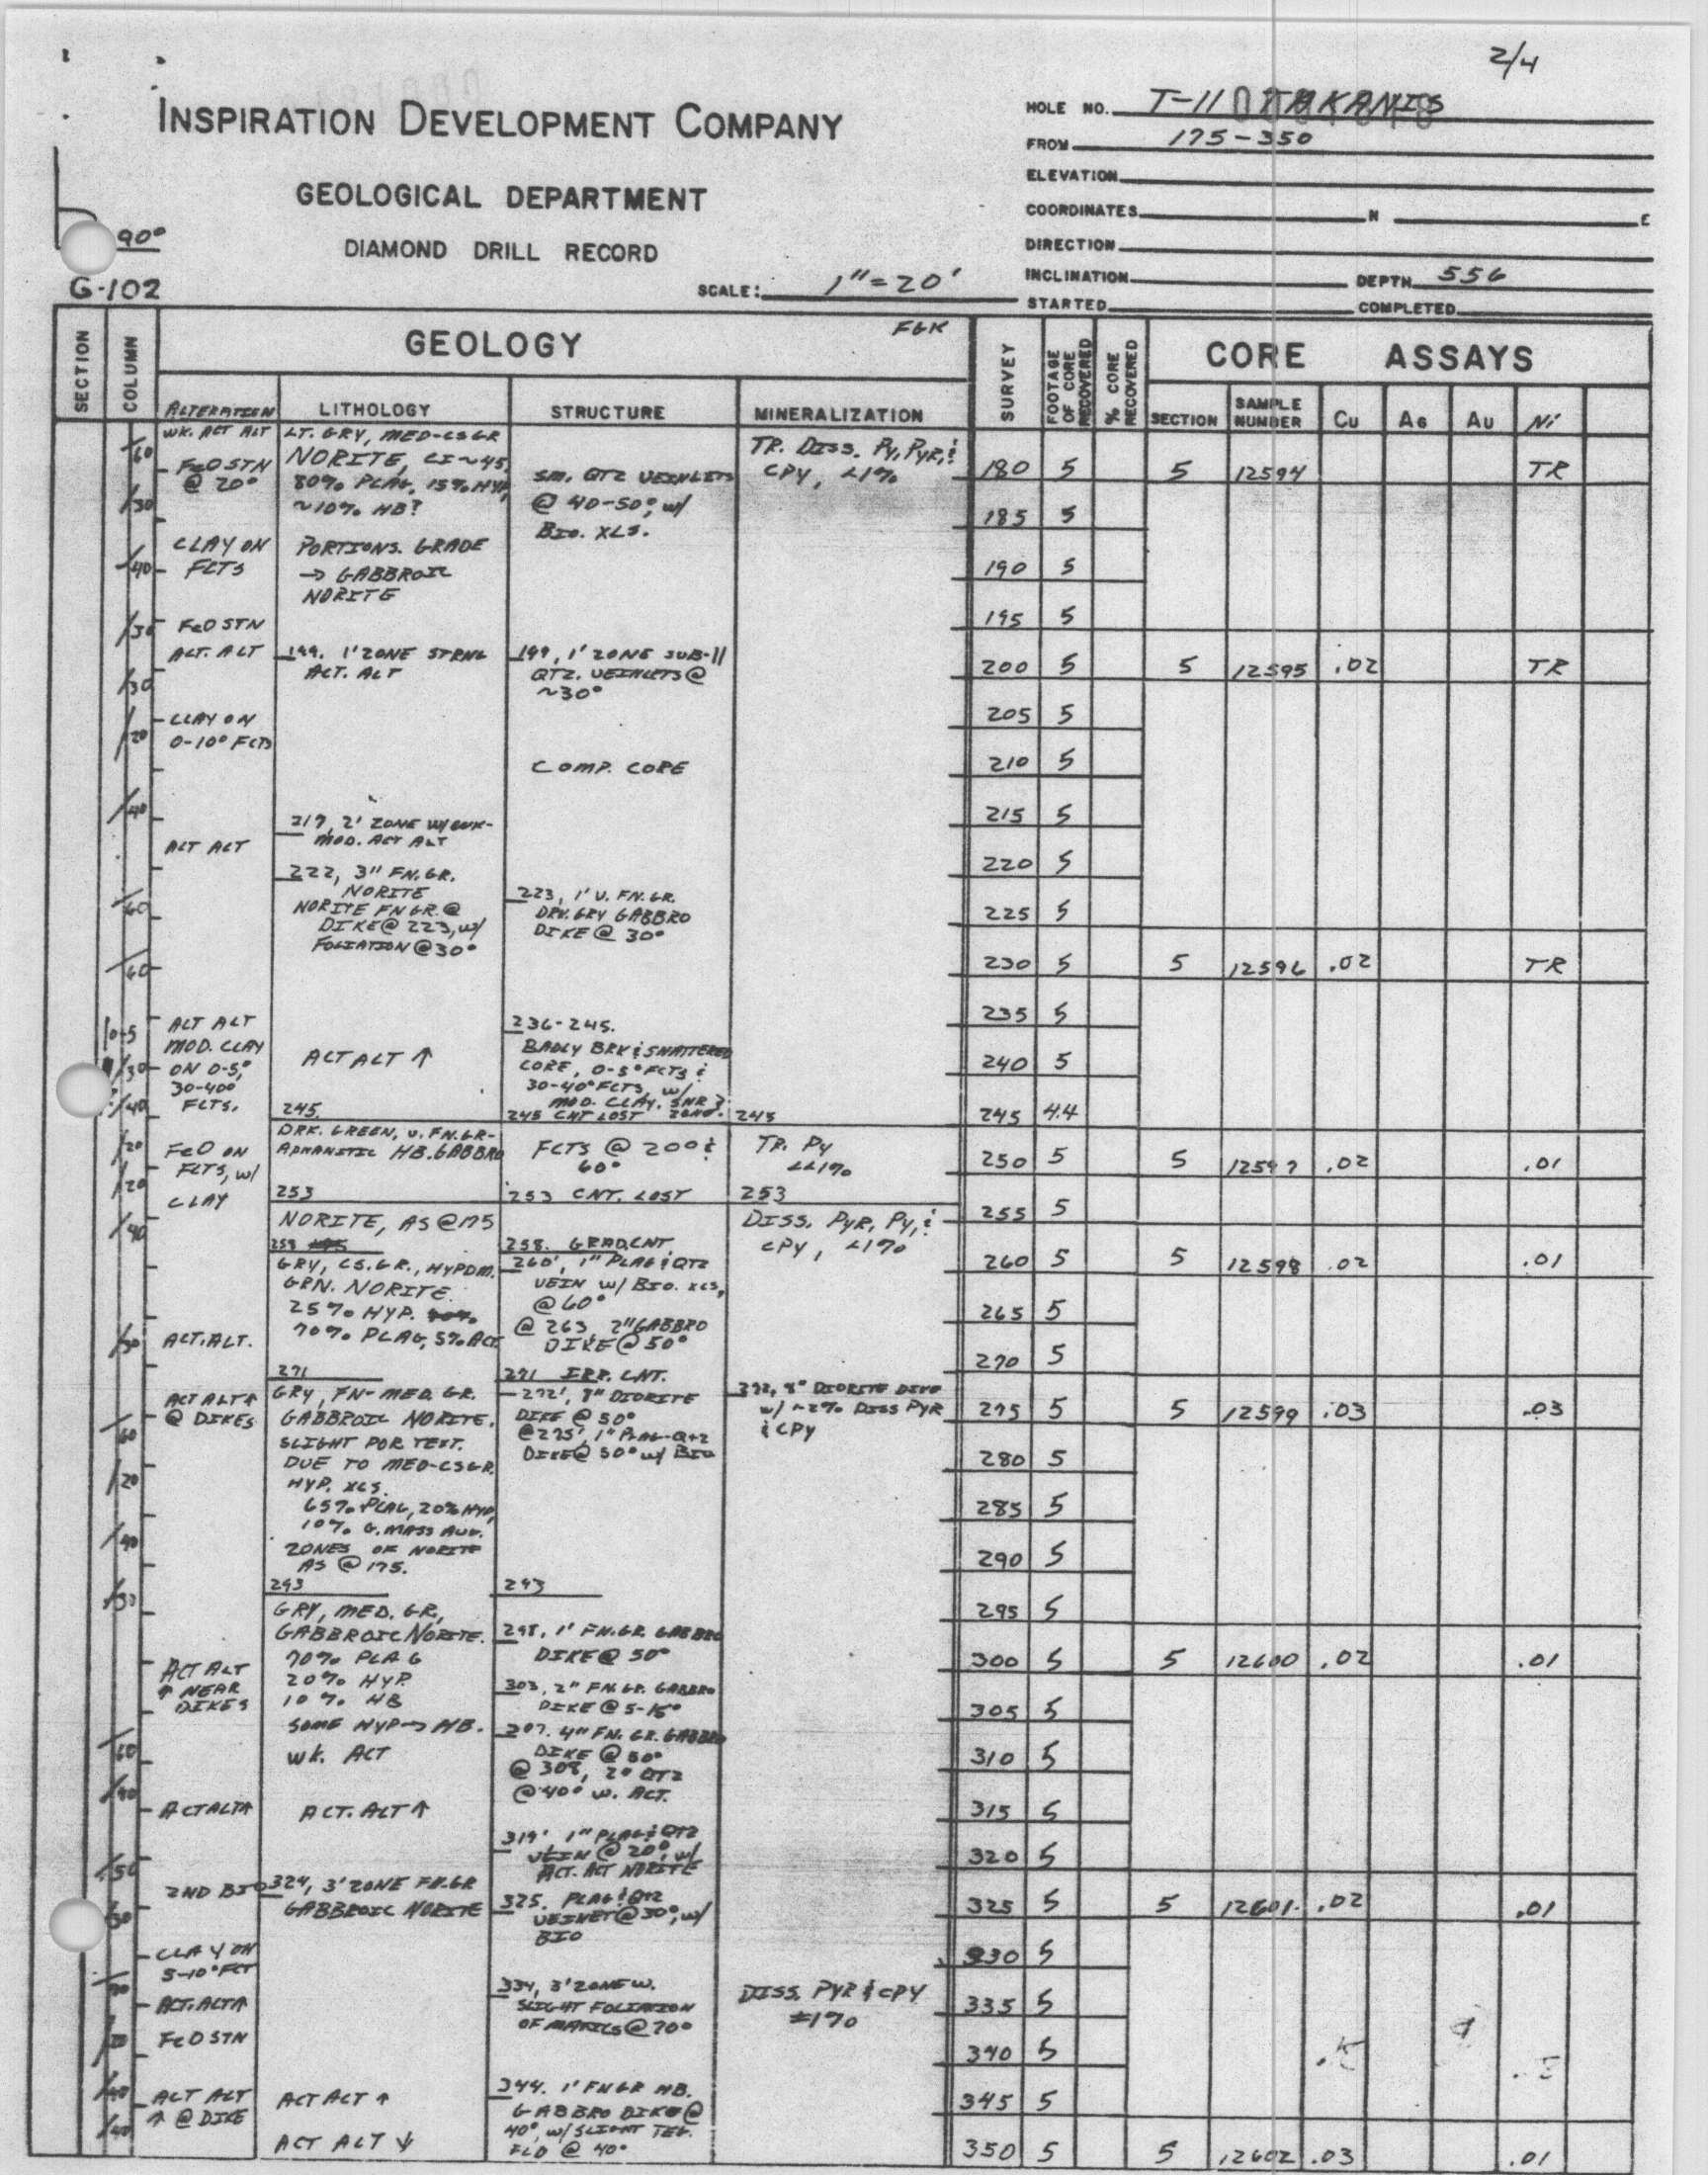 2/4
INSPIRATION DEVELOPMENT COMPANY
GEOLOGICAL DEPARTMENT
DIAMOND DRILL RECORD
90°
G-102
SCALE: 1"=20'
HOLE NO. T-11
FROM 175-350
ELEVATION
COORDINATES N E
DIRECTION
INCLINATION DEPTH 556
STARTED COMPLETED
SECTION
COLUMN
GEOLOGY
FGK
ALTERATION
LITHOLOGY
STRUCTURE
MINERALIZATION
SURVEY
FOOTAGE OF CORE RECOVERED
% CORE RECOVERED
CORE ASSAYS
SECTION SAMPLE NUMBER Cu AG AU Ni
60
30
40
30
20
40
60
60
0-5
30
40
20
20
40
30
60
20
40
30
60
WK. ACT ALT
FeO STN
@ 20°
CLAY ON
FCTS
FeO STN
ALT. ALT
CLAY ON
0-10° FCTS
ALT ALT
ALT ALT
MOD. CLAY
ON 0-5,°
30-40°
FCTS.
FeO ON
FCTS, W/
CLAY
ALT. ALT.
ACT ALT↑
@ DIKES
ACT ALT
↑ NEAR
DIKES
ACT ALT↑
2ND BIO
CLAY ON
5-10° FCT
ACT. ALT↑
FeO STN
ALT ALT
↑ @ DIKE
LT. GRY, MED-CSGR
NORITE, CI~45,
80% PLAG, 15% HYP,
~10% HB?
PORTIONS. GRADE
→ GABBROIC
NORITE
199. 1' ZONE STRNG
ACT. ALT
217, 2' ZONE W/ WK-
MOD. ACT ALT
222, 3" FN. GR.
NORITE
NORITE FN GR. @
DIKE @ 223, W/
FOLIATION @ 30°
ACT ALT ↑
245.
DRK. GREEN, V. FN. GR-
APHANITIC HB. GABBRO
253
NORITE, AS @ 175
258
GRY, CS. GR., HYPDM.
GRN. NORITE.
25% HYP.
70% PLAG, 5% ACT.
271
GRY, FN-MED. GR.
GABBROIC NORITE.
SLIGHT POR TEXT.
DUE TO MED-CSGR.
HYP. XLS.
65% PLAG, 20% HYP,
10% G. MASS AUG.
ZONES OF NORITE
AS @ 175.
293
GRY, MED. GR.,
GABBROIC NORITE.
70% PLAG
20% HYP
10% HB
SOME HYP→ HB.
WK. ACT
ACT. ALT ↑
324, 3' ZONE FN. GR
GABBROIC NORITE
ACT ALT ↑
ACT ALT ↓
SM. QTZ VEINLETS
@ 40-50°, W/
BIO. XLS.
199, 1' ZONE SUB-11
QTZ. VEINLETS @
~30°
COMP. CORE
223, 1' V. FN. GR.
DRK. GRY GABBRO
DIKE @ 30°
236-245.
BADLY BRK & SHATTERED
CORE, 0-5° FCTS &
30-40° FCTS, W/
MOD. CLAY. SHR?
245 CNT LOST ZONE.
FCTS @ 20° &
60°
253 CNT. LOST
258. GRAD. CNT.
260', 1" PLAG & QTZ
VEIN W/ BIO. XLS,
@ 60°
@ 263, 2" GABBRO
DIKE @ 50°
271 IRR. CNT.
272', 8" DIORITE
DIKE @ 50°
@ 275', 1" PLAG-QTZ
DIKE @ 50° W/ BIO
293
298, 1' FN. GR. GABBRO
DIKE @ 50°
303, 2" FN. GR. GABBRO
DIKE @ 5-15°
307. 4" FN. GR. GABBRO
DIKE @ 50°
@ 308, 2" QTZ
@ 40° W. ACT.
319' 1" PLAG & QTZ
VEIN @ 20°, W/
ACT. ACT NORITE
325. PLAG & QTZ
VEINET @ 30°, W/
BIO
334, 3' ZONE W.
SLIGHT FOLIATION
OF MAFICS @ 70°
344. 1' FN GR HB.
GABBRO DIKE @
40°, W/ SLIGHT TEG.
FLD @ 40°
TR. DISS. PY, PYR, &
CPY, <1%
245
TR. PY
<<1%
253
DISS. PYR, PY, &
CPY, <1%
272, 8" DIORITE DIKE
W/ ~2% DISS PYR
& CPY
DISS. PYR & CPY
±1%
180 5 5 12594 TR
185 5
190 5
195 5
200 5 5 12595 .02 TR
205 5
210 5
215 5
220 5
225 5
230 5 5 12596 .02 TR
235 5
240 5
245 4.4
250 5 5 12597 .02 .01
255 5
260 5 5 12598 .02 .01
265 5
270 5
275 5 5 12599 .03 .03
280 5
285 5
290 5
295 5
300 5 5 12600 .02 .01
305 5
310 5
315 5
320 5
325 5 5 12601 .02 .01
330 5
335 5
340 5
345 5
350 5 5 12602 .03 .01